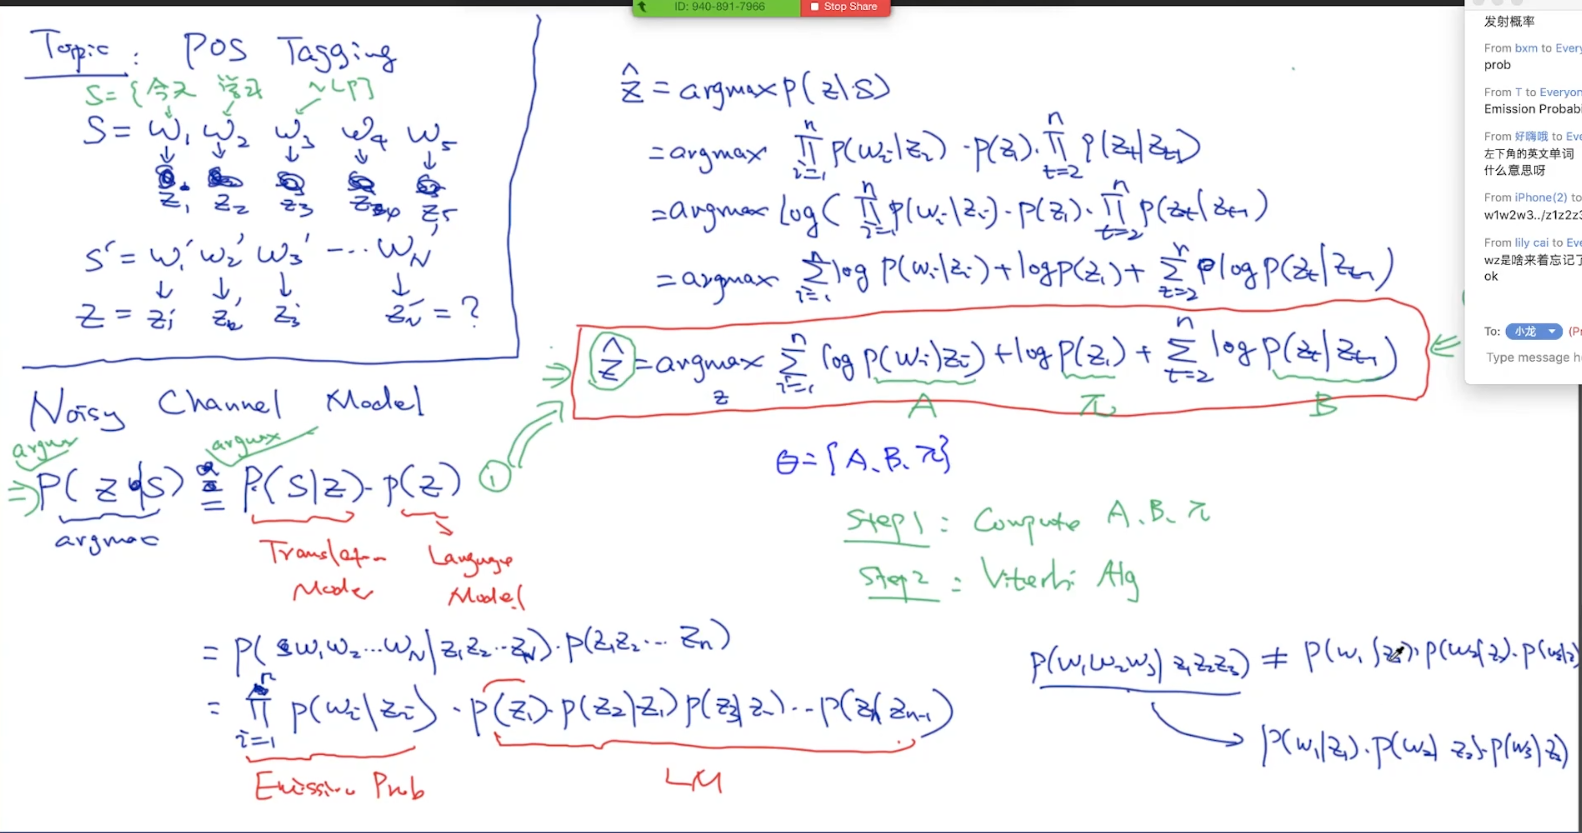 ID: 940-891-7966
Stop Share
Topic : POS Tagging
S = {今天
NLP}
S = w₁ w₂ w₃ w₄ w₅
z₁ z₂ z₃ z₄ z₅
S' = w₁' w₂' w₃' --- w_N'
Z = z₁' z₂' z₃' z_N' = ?
Noisy Channel Model
argmax argmax
P(z|S) = P(S|z)·p(z) ①
argmax
Translation Model
Language Model
= P(w₁w₂...w_N|z₁z₂...z_N)·p(z₁z₂...z_n)
= ∏ᵢ₌₁ⁿ p(wᵢ|zᵢ) · p(z₁)·p(z₂|z₁)p(z₃|z₂)...p(z_n|z_{n-1})
Emission Prob
LM
ẑ = argmax p(z|s)
= argmax ∏ᵢ₌₁ⁿ p(wᵢ|zᵢ)·p(z₁)·∏ₜ₌₂ⁿ p(zₜ|zₜ₋₁)
= argmax log(∏ᵢ₌₁ⁿ p(wᵢ|zᵢ)·p(z₁)·∏ₜ₌₂ⁿ p(zₜ|zₜ₋₁)
= argmax ∑ᵢ₌₁ⁿ log p(wᵢ|zᵢ)+logp(z₁)+∑ₜ₌₂ⁿ logp(zₜ|zₜ₋₁)
ẑ = argmax_z ∑ᵢ₌₁ⁿ log p(wᵢ|zᵢ)+log p(z₁)+∑ₜ₌₂ⁿ log p(zₜ|zₜ₋₁)
A π B
θ = {A、B、π}
Step1 : Compute A、B、π
Step2 : Viterbi Alg
p(w₁w₂w₃|z₁z₂z₃) ≠ p(w₁|z₁)·p(w₂|z₂)·p(w₃|z
p(w₁|z₁)·p(w₂|z₂)·p(w₃|z₃)
发射概率
From bxm to Every
prob
From T to Everyon
Emission Probabi
From 好嗨哦 to Eve
左下角的英文单词
什么意思呀
From iPhone(2) to
w1w2w3../z1z2z3
From lily cai to Eve
wz是啥来着忘记了
ok
To: 小龙 (Pr
Type message he